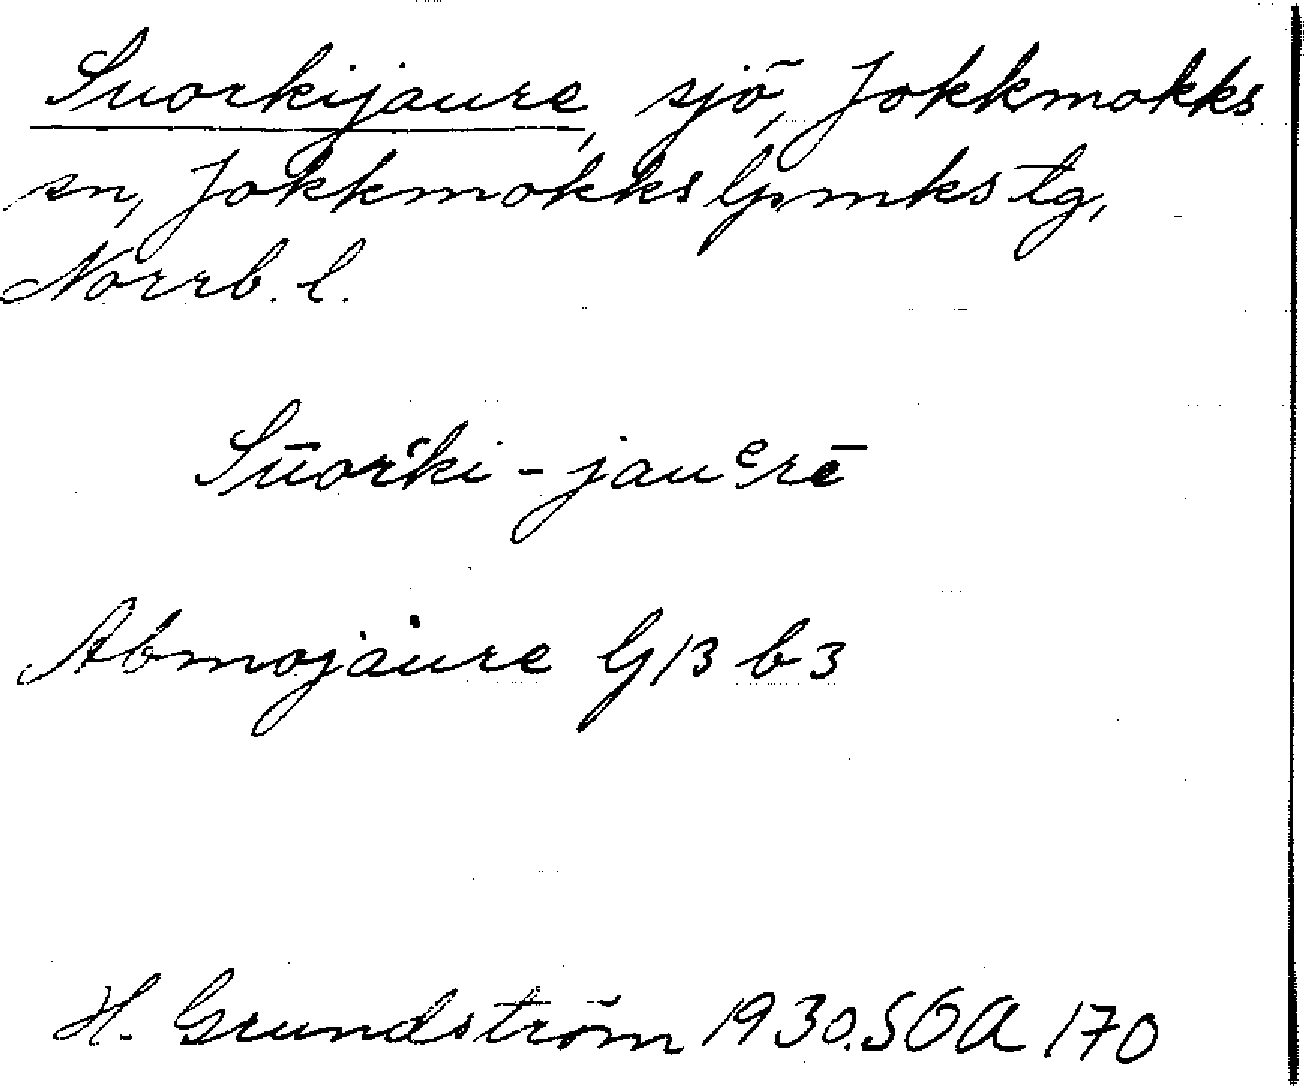 Suorkijaure, sjö, Jokkmokks
sn, Jokkmokks lpmks tg,
Norrb. l.
Sūor̄'ki - jauᵉrē
Abmojaure G 13 b 3
H. Grundström 1930. SOA 170